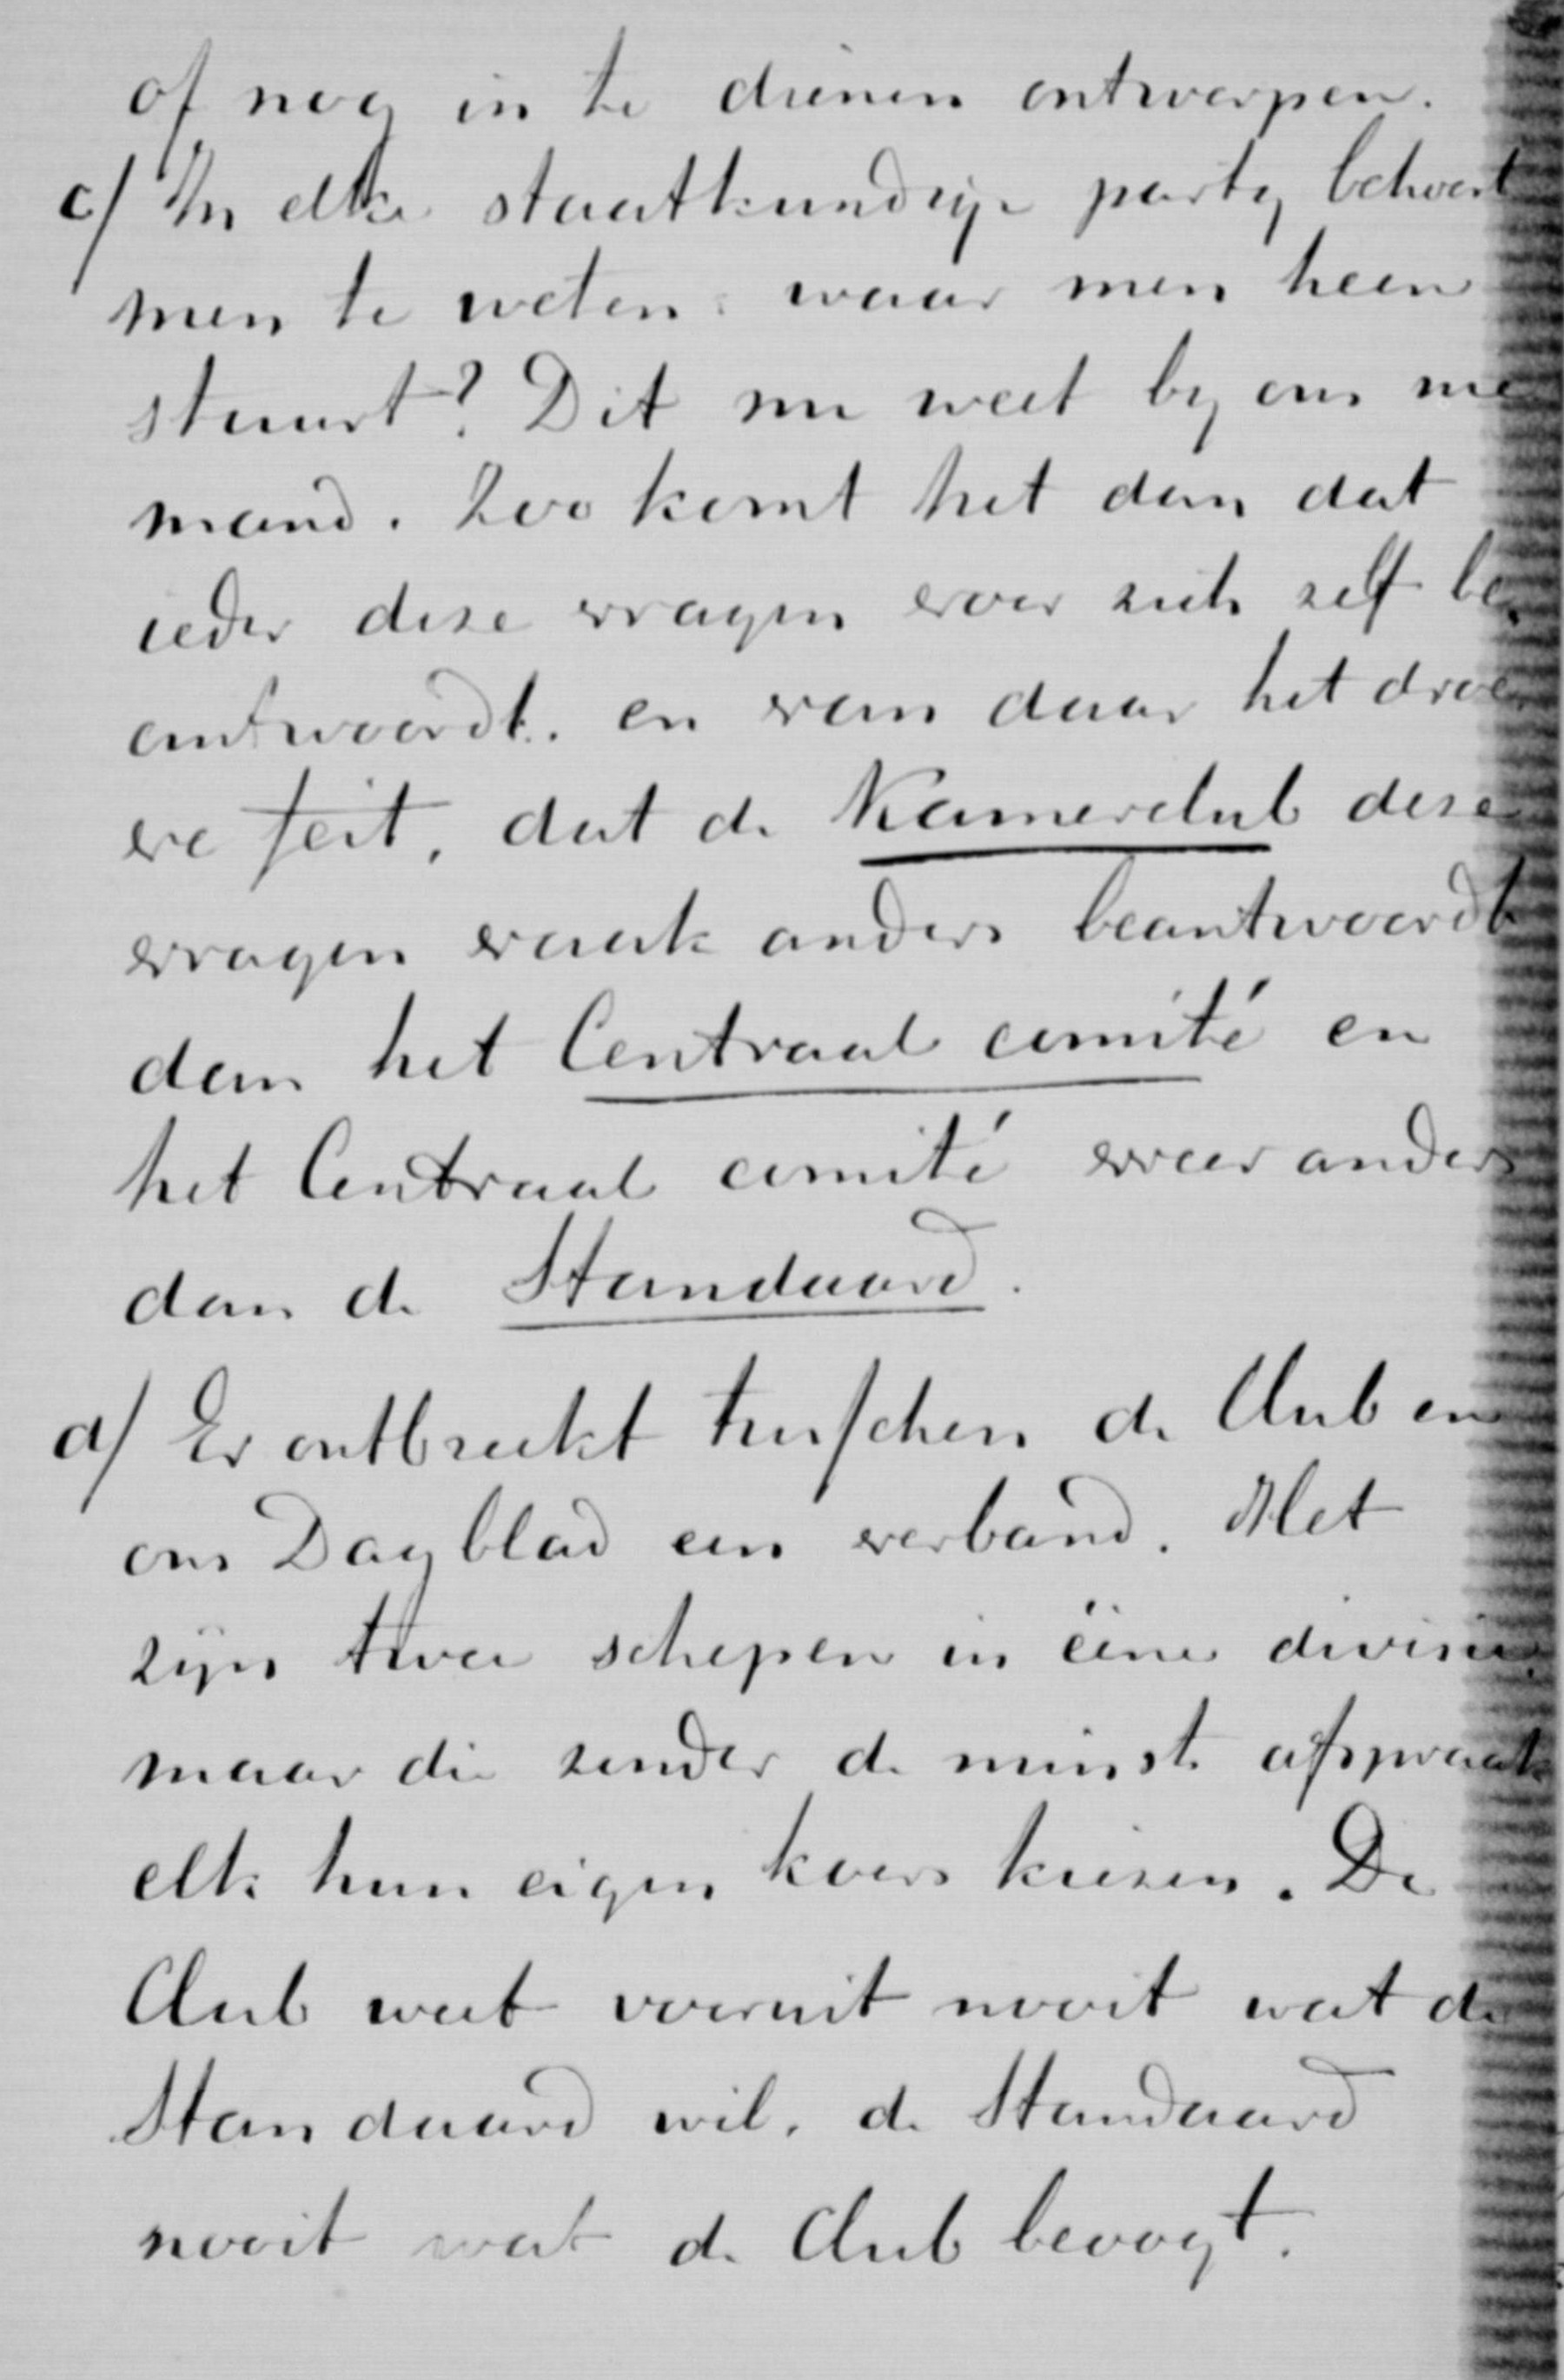 of nog in te dienen ontwerpen.
c/ In elke staatkundige party behoort
men te weten: waar men heen
stuurt? Dit nu weet by ons nie
mand. Zoo komt het dan dat
ieder deze vragen voor zich zelf be,
antwoordt. en van daar het droe
ve feit, dat de Kamerclub deze
vragen vaak anders beantwoordt
dan het Centraal comité en
het Centraal comité weer anders
dan de Standaard.
d/ Er ontbreekt tusschen de Club en
ons Dagblad een verband. Het
zijn twee schepen in ééne divisie
maar die zonder de minste afspraak
elk hun eigen koers kiezen. De
Club weet vooruit nooit wat de
Standaard wil, de Standaard
nooit wat de Club beoogt.